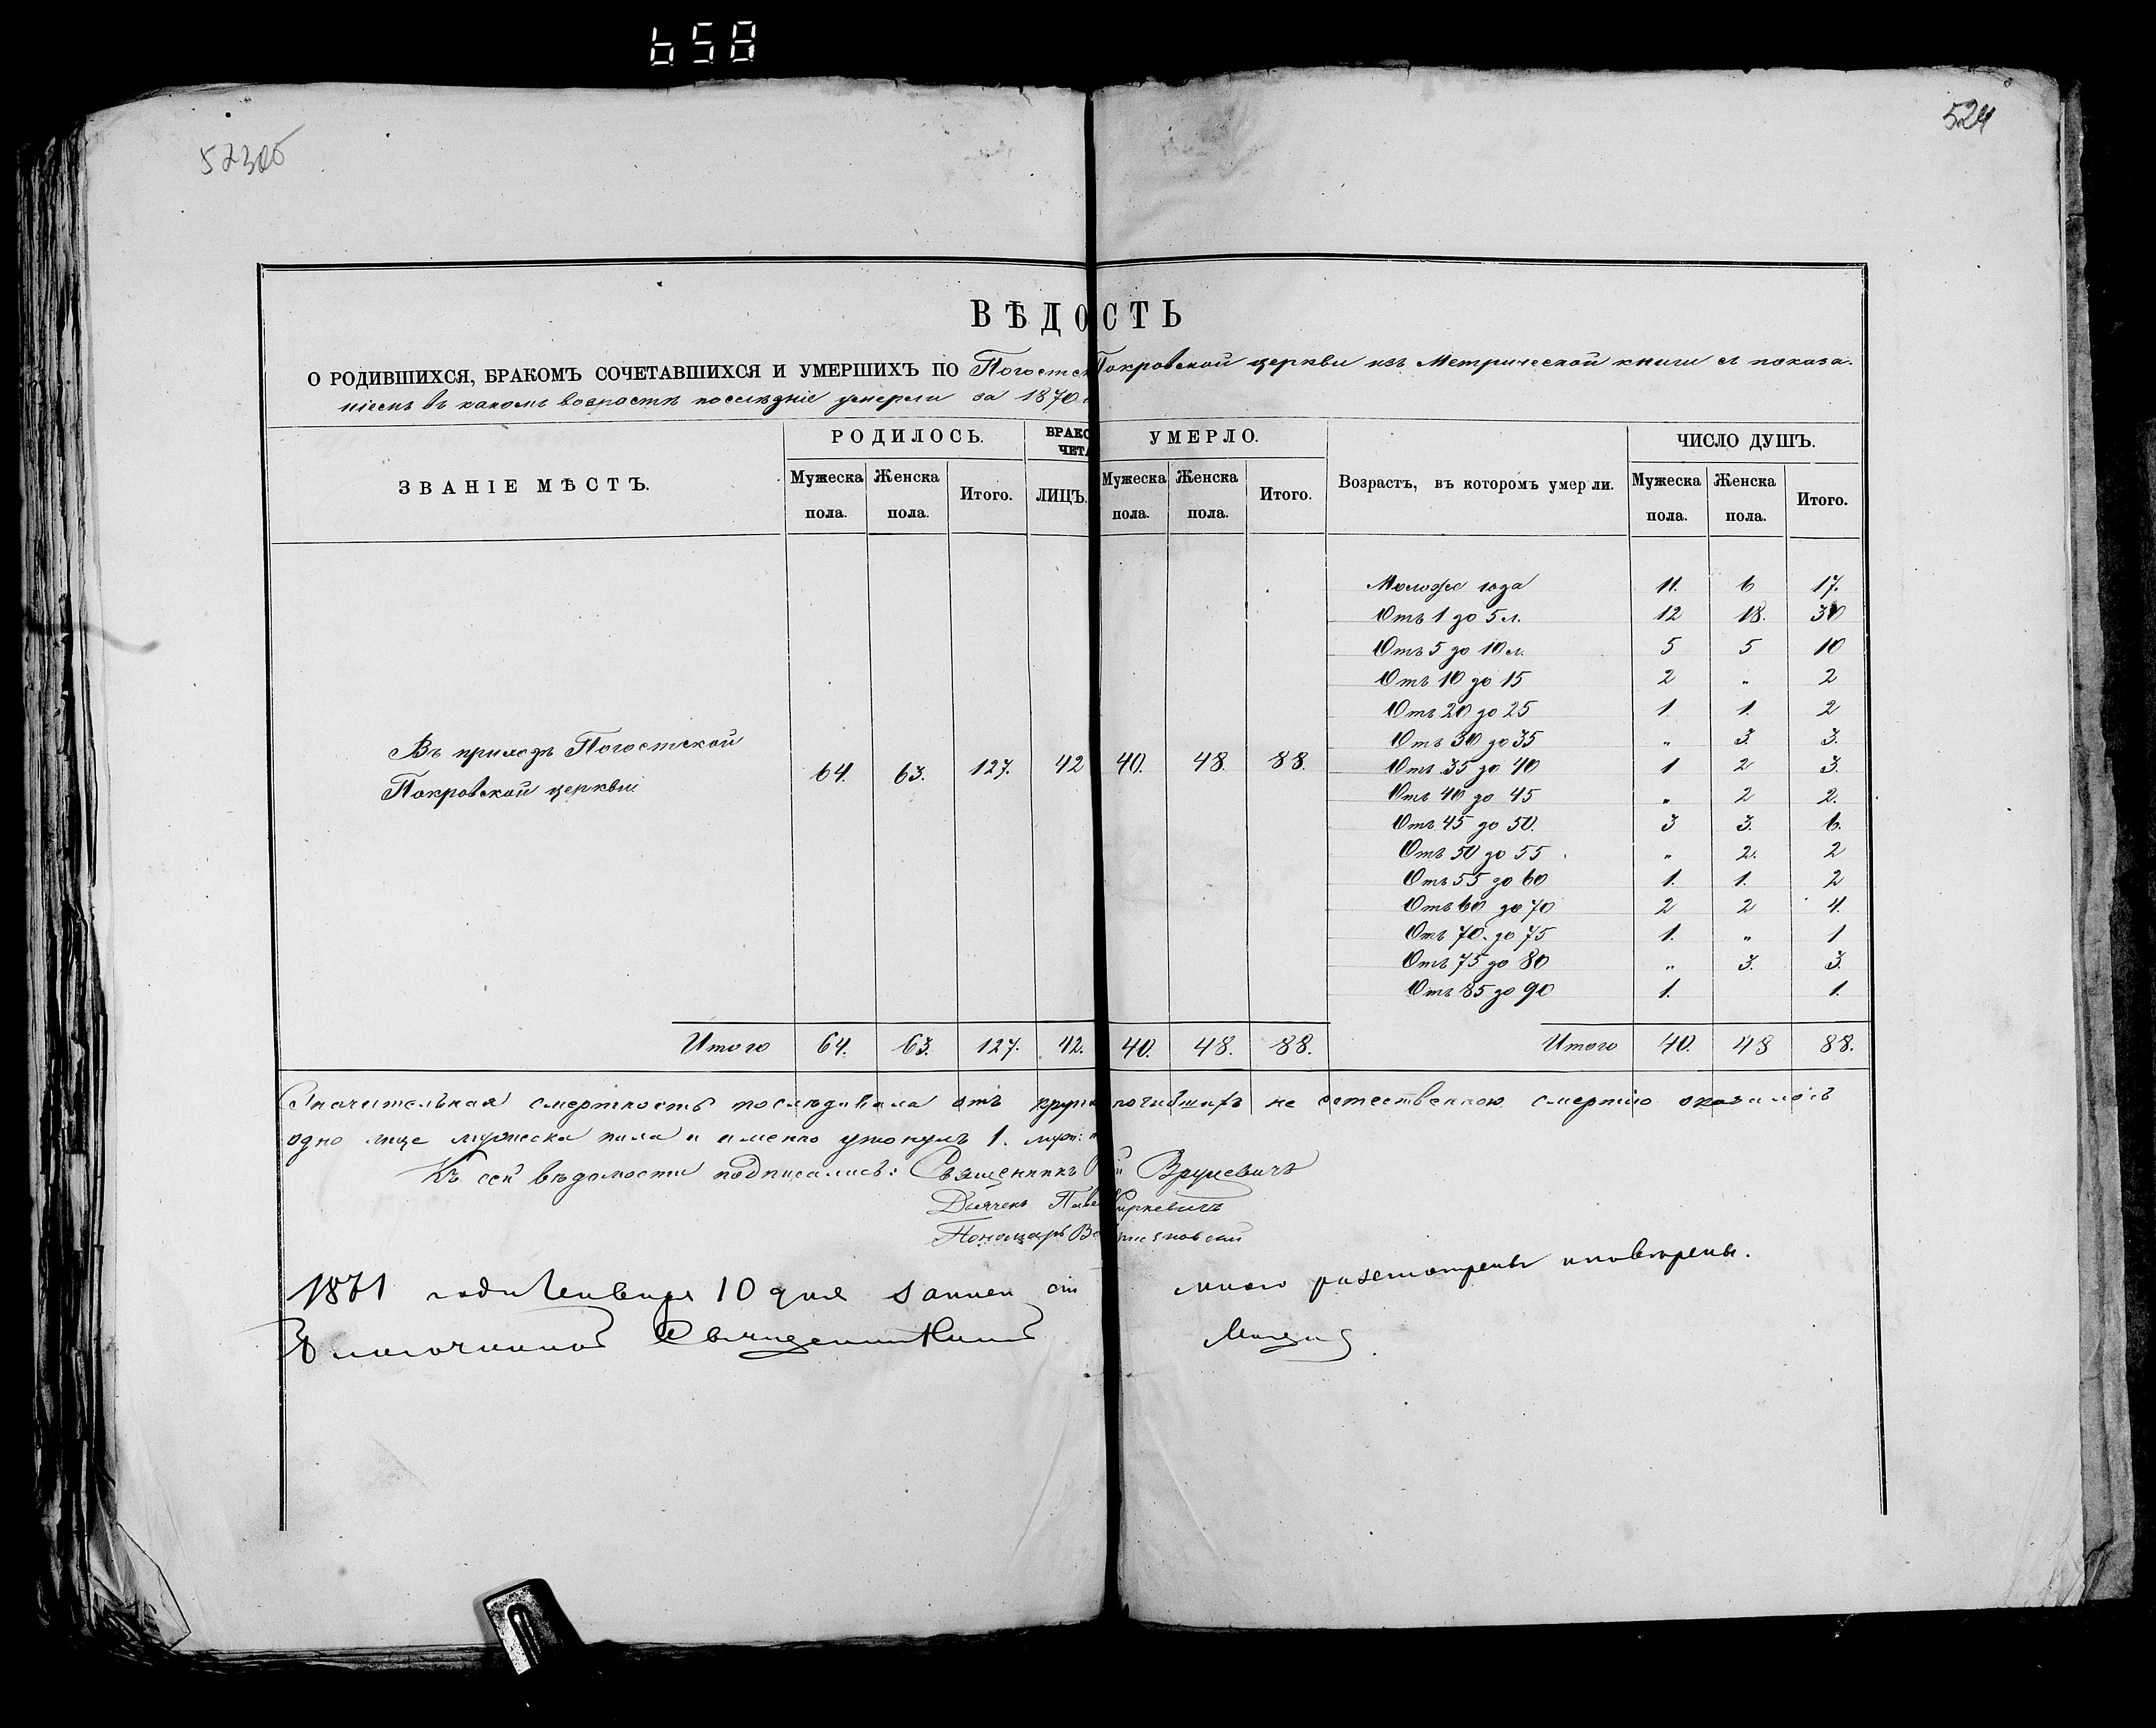 658
524
ВѢДОСТЬ
О РОДИВШИХСЯ, БРАКОМЪ СОЧЕТАВШИХСЯ И УМЕРШИХЪ ПО Погостск Покровской церкви изъ Метрической книги съ показа-
ніемъ въ какомъ возрастѣ послѣдніе умерли за 1870
ЗВАНІЕ МѢСТЪ. РОДИЛОСЬ. БРАКО УМЕРЛО. Возрастъ, въ которомъ умерли. ЧИСЛО ДУШЪ.
ЧЕТА
Мужеска пола. Женска пола. Итого. ЛИЦЪ. Мужеска пола. Женска пола. Итого. Мужеска пола. Женска пола. Итого.
Моложе года 11. 6 17.
Отъ 1 до 5 л. 12 18. 30
Отъ 5 до 10 л. 5 5 10
Отъ 10 до 15 2 „ 2
Отъ 20 до 25 1 1. 2
Отъ 30 до 35 „ 3. 3.
Отъ 35 до 40 1 2 3.
Отъ 40 до 45 „ 2 2.
Отъ 45 до 50. 3 3. 6.
Отъ 50 до 55 „ 2. 2
Отъ 55 до 60 1. 1. 2
Отъ 60 до 70 2 2 4.
Отъ 70. до 75 1. „ 1
Отъ 75 до 80 „ 3. 3.
Отъ 85 до 90 1. 1.
Въ приходѣ Погостской
Покровской церкви 64. 63. 127. 42 40. 48. 88.
Итого 64. 63. 127. 42. 40. 48. 88. Итого 40. 48 88.
Значительная смертность послѣдовала отъ крупа погибшихъ не естественною смертію оказалось
одно лице мужеска пола и именно утонулъ 1. муж:
Къ сей вѣдомости подписались: Священникъ Вруцевичъ
Дьячекъ Паве
Пономарь
1871 года Генваря 10 дня мною разсмотрены и повѣрены.
Благочинный Священникъ